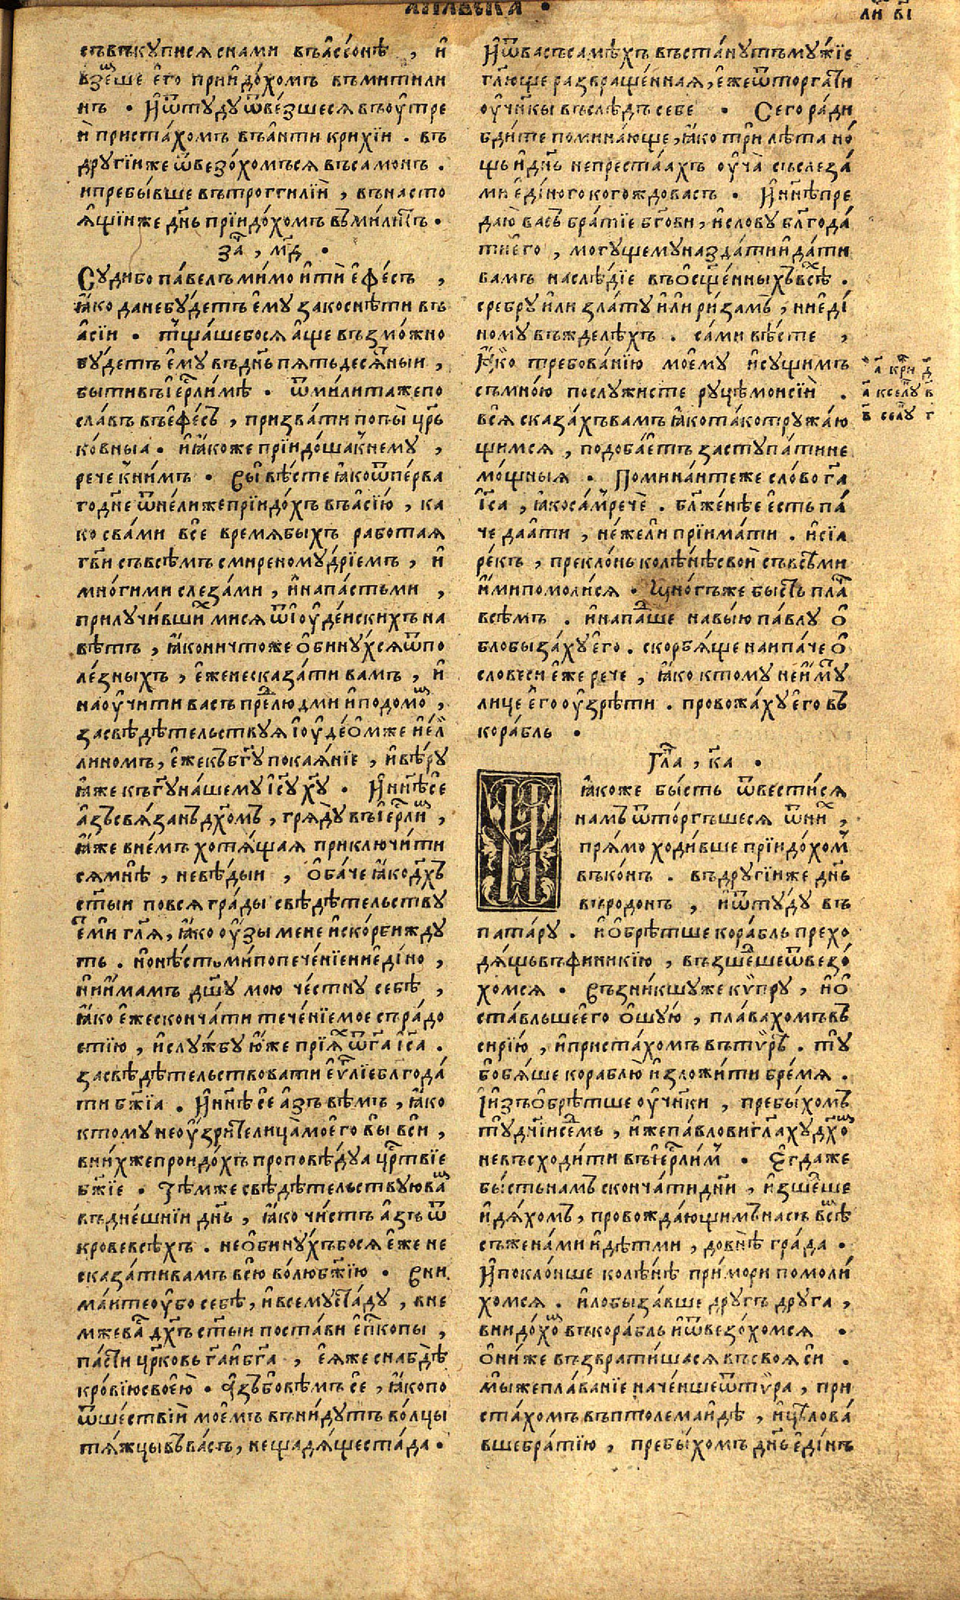 съвъкупися снами въа́ссонѣ , и҆
взе́ше є҆го̀ прїидо́хомъ въмитили
нъ . И҆ѿтуду ѿве́зшеся въоу҆тре
и҆ приста́хомъ въа҆нти крихі́и . въ
другі́иже ѿвезо́хомъся въсамонъ .
ипребы́вше вътрогили́и , въна́сто
ꙗ҆́щїиже дн҃ь прїидо́хомъ въмилитъ .
за҇ , м҃д .
Суди́бо па́велъ ми́мо и҆ти є҆фе́съ ,
ꙗ҆́ко дане бу́детъ є҆му̀ закоснѣ́ти въ
а҆сі́и . тща́шебося а҆́ще възмо́жно
бу́детъ є҆му̀ въдн҃ь пятьдеся́тныи ,
бы́ти въі҆ерл҇и́мѣ . ѿмили́таже по
сла́въ въє҆фе́съ , призва́ти попы̀ цр҃ъ
ко́вныа . и҆ꙗ҆́коже прїидо́ша кнему̀ ,
речѐ кни́мъ . Вы̀ вѣ́сте ꙗ҆́ко ѿпе́рва
го дне ѿне́лиже прїидо́хъ въа҆сі́ю , ка
ко сва́ми все вре́мя бы́хъ работая
гв҃и съвсѣ́мъ смиреному́дрїемъ , и҆
мно́гими слеза́ми , и҆напа́стьми ,
прилучи́вшимися ѿі҆оуде́искихъ на
вѣ́тъ , ꙗ҆́ко ничто́же ѻ҆бину́хся ѿпо
ле́зныхъ , є҆́же несказа́ти ва́мъ , и҆
наоу҆чи́ти ва́съ пре́д лю́дми и҆подомо́м ,
засвѣдѣ́тельствуя і҆оуде́ѡмже и҆є҆́л
лином , є҆́же къбг҃у покая́нїе , и҆вѣ́ру
ꙗ҆́же къгд҇у на́шему і҆су х҇у . И҆нн҃ѣ се
а҆́зъ свя́занъ дх҃омъ , гряду̀ въі҆ерл҇и́м ,
ꙗ҆́же вне́мъ хотя́щая приключи́ти
сямнѣ̀ , невѣ́дыи , ѻ҆ба́че ꙗ҆́ко дх҃ъ
ст҃ы́и повся гра́ды свѣдѣ́тельству
етъ ми гл҃я , ꙗ҆́ко оу҆́зы мене и҆ско́рби жду
тъ . нонѣ́сть ми попече́нїе ниеди́но ,
ниимамъ дш҃у мою̀ че́стну себѣ̀ ,
ꙗ҆́ко є҆́же сконча́ти тече́нїе моѐ съра́до
стїю , и҆слу́жбу ю҆́же прїя́х ѿгд҇а і҆са .
засвѣдѣ́тельствовати є҆ѵ҆л҇їе бл҃года́
ти бж҃їа . И҆нн҃ѣ се а҆́зъ вѣ́мъ , ꙗ҆́ко
ктому̀ неоу҆́зрите лица̀ моего̀ вы̀ вси̂ ,
вни́хже проидо́хъ проповѣ́дуа црт҇вїе
бж҃їе . Тѣ́мже свѣдѣ́тельствую ва́м
въдне́шнїи дн҃ь , ꙗ҆́ко чи́стъ а҆́зъ ѿ
крове всѣ́хъ . неѻ҆бину́хъбося є҆́же не
сказа́ти ва́мъ всю̀ во́лю бж҃їю . Вни
ма́ите оу҆́бо себѣ̀ , и҆всему̀ ста́ду , вне
мже ва́с дх҃ъ ст҃ы́и поста́ви є҆п҇копы ,
пасти̂ цр҃ковь гд҇а и҆бг҃а , є҆я́же снабдѣ̀
кро́вїю свое́ю . А҆́зъ бо вѣ́мъ се , ꙗ҆́ко по
ѿше́ствїи мое́мъ вни́дутъ во́лцы
тя́жцы въва́съ , нещадя́ще ста́да .
И҆ѿва́съ самѣ́хъ въста́нутъ му́жїе
гл҃юще развраще́нная , є҆́же ѿторга́ти
оу҆чн҃кы въслѣ́дъ себе . Сего̀ ра́ди
бди́те помина́юще , ꙗ҆́ко три̂ лѣ́та но́
щь и҆дн҃ь непреста́ахъ оу҆ча̀ съслеза́
ми є҆ди́ного кого́ждо ва́съ . И҆нн҃ѣ пре
даю̀ ва́съ бра́тїе бг҃ови , и҆сло́ву бл҃года́
ти є҆го̀ , могу́щему назда́ти и҆да́ти
ва́мъ наслѣ́дїе въѻ҆сщ҃е́нныхъ всѣ́х .
сребру̀ или зла́ту и҆ли ри́замъ , ниеди́
ному въжделѣ́хъ . са́ми вѣ́сте ,
ꙗ҆́ко требова́нїю моему̀ и҆су́щимъ
съмно́ю послужи́сте ру́цѣ мои сі́и .
вся̀ сказа́хъ ва́мъ ꙗ҆́ко та́ко тружа́ю
щимся , подоба́етъ заступа́ти не
мощныя . Помина́ите же сло́во гд҇а
і҆са , ꙗ҆́ко са́м речѐ . бл҃же́нѣе є҆́сть па́
че дая́ти , не́жели прїима́ти . и҆сїа̀
ре́къ , прекло́нь колѣ́нѣ свои̂ съвсѣми
и҆́ми помоли́ся . Мно́гъ же бы́сть пла́ч
всѣ́мъ . и҆напа́дше на вы́ю па́влу ѻ҆
блобыза́ху є҆го̀ . скорбя́ще наипа́че ѻ҆
словеси̂ є҆́же рече , ꙗ҆́ко ктому̀ неи́мут
лицѐ є҆го̀ оу҆зрѣ́ти . провожа́ху є҆го̀ въ
кора́бль .
Гл҃а , к҃а .
И҆ꙗ҆́коже бы́сть ѿвести́ся
на́мъ ѿто́ргъшеся ѿни́х ,
пря́мо ходи́вше прїидо́хом
въко́нъ . въдругі́иже дн҃ь
въро́донъ , и҆ѿту́ду въ
пата́ру . и҆ѻ҆брѣ́тше кора́бль прехо
дя́щь въфиникі́ю , възше́дше ѿвезо́
хомся . Възни́кшу же ки́пру , и҆ѻ҆
ста́вльше є҆го̀ ѻ҆шу́ю , пла́вахомъ въ
сирі́ю , и҆приста́хомъ въти́ръ . ту
бобя́ше кораблю̀ и҆зложи́ти бре́мя .
І҆и҆зъѻ҆брѣ́тше оу҆чн҃ки , пребы́хомъ
ту̀ дні́и се́дмь , и҆же па́влови гл҃аху дх҃о́м
невъсходи́ти въі҆ерл҇и́м . Є҆гда́же
бы́сть на́мъ сконча́ти дни̂ , и҆зше́дше
и҆дя́хомъ , провожда́ющимъ на́съ всѣ́м
съжена́ми и҆дѣтми , довнѣ̀ гра́да .
И҆покло́нше колѣ́нѣ при мо́ри помоли́
хомся . и҆лобыза́вше дру́гъ дру́га ,
внидо́хом въкора́бль и҆ѿвезо́хомся .
ѻ҆ни́же възврати́шася въсвоя̀ си .
Мы́же пла́ванїе наче́нше ѿти́ра , при
ста́хомъ въптолемаи́дѣ , и҆цѣлова́
вше бра́тїю , пребы́хомъ дн҃ь є҆ди́нъ